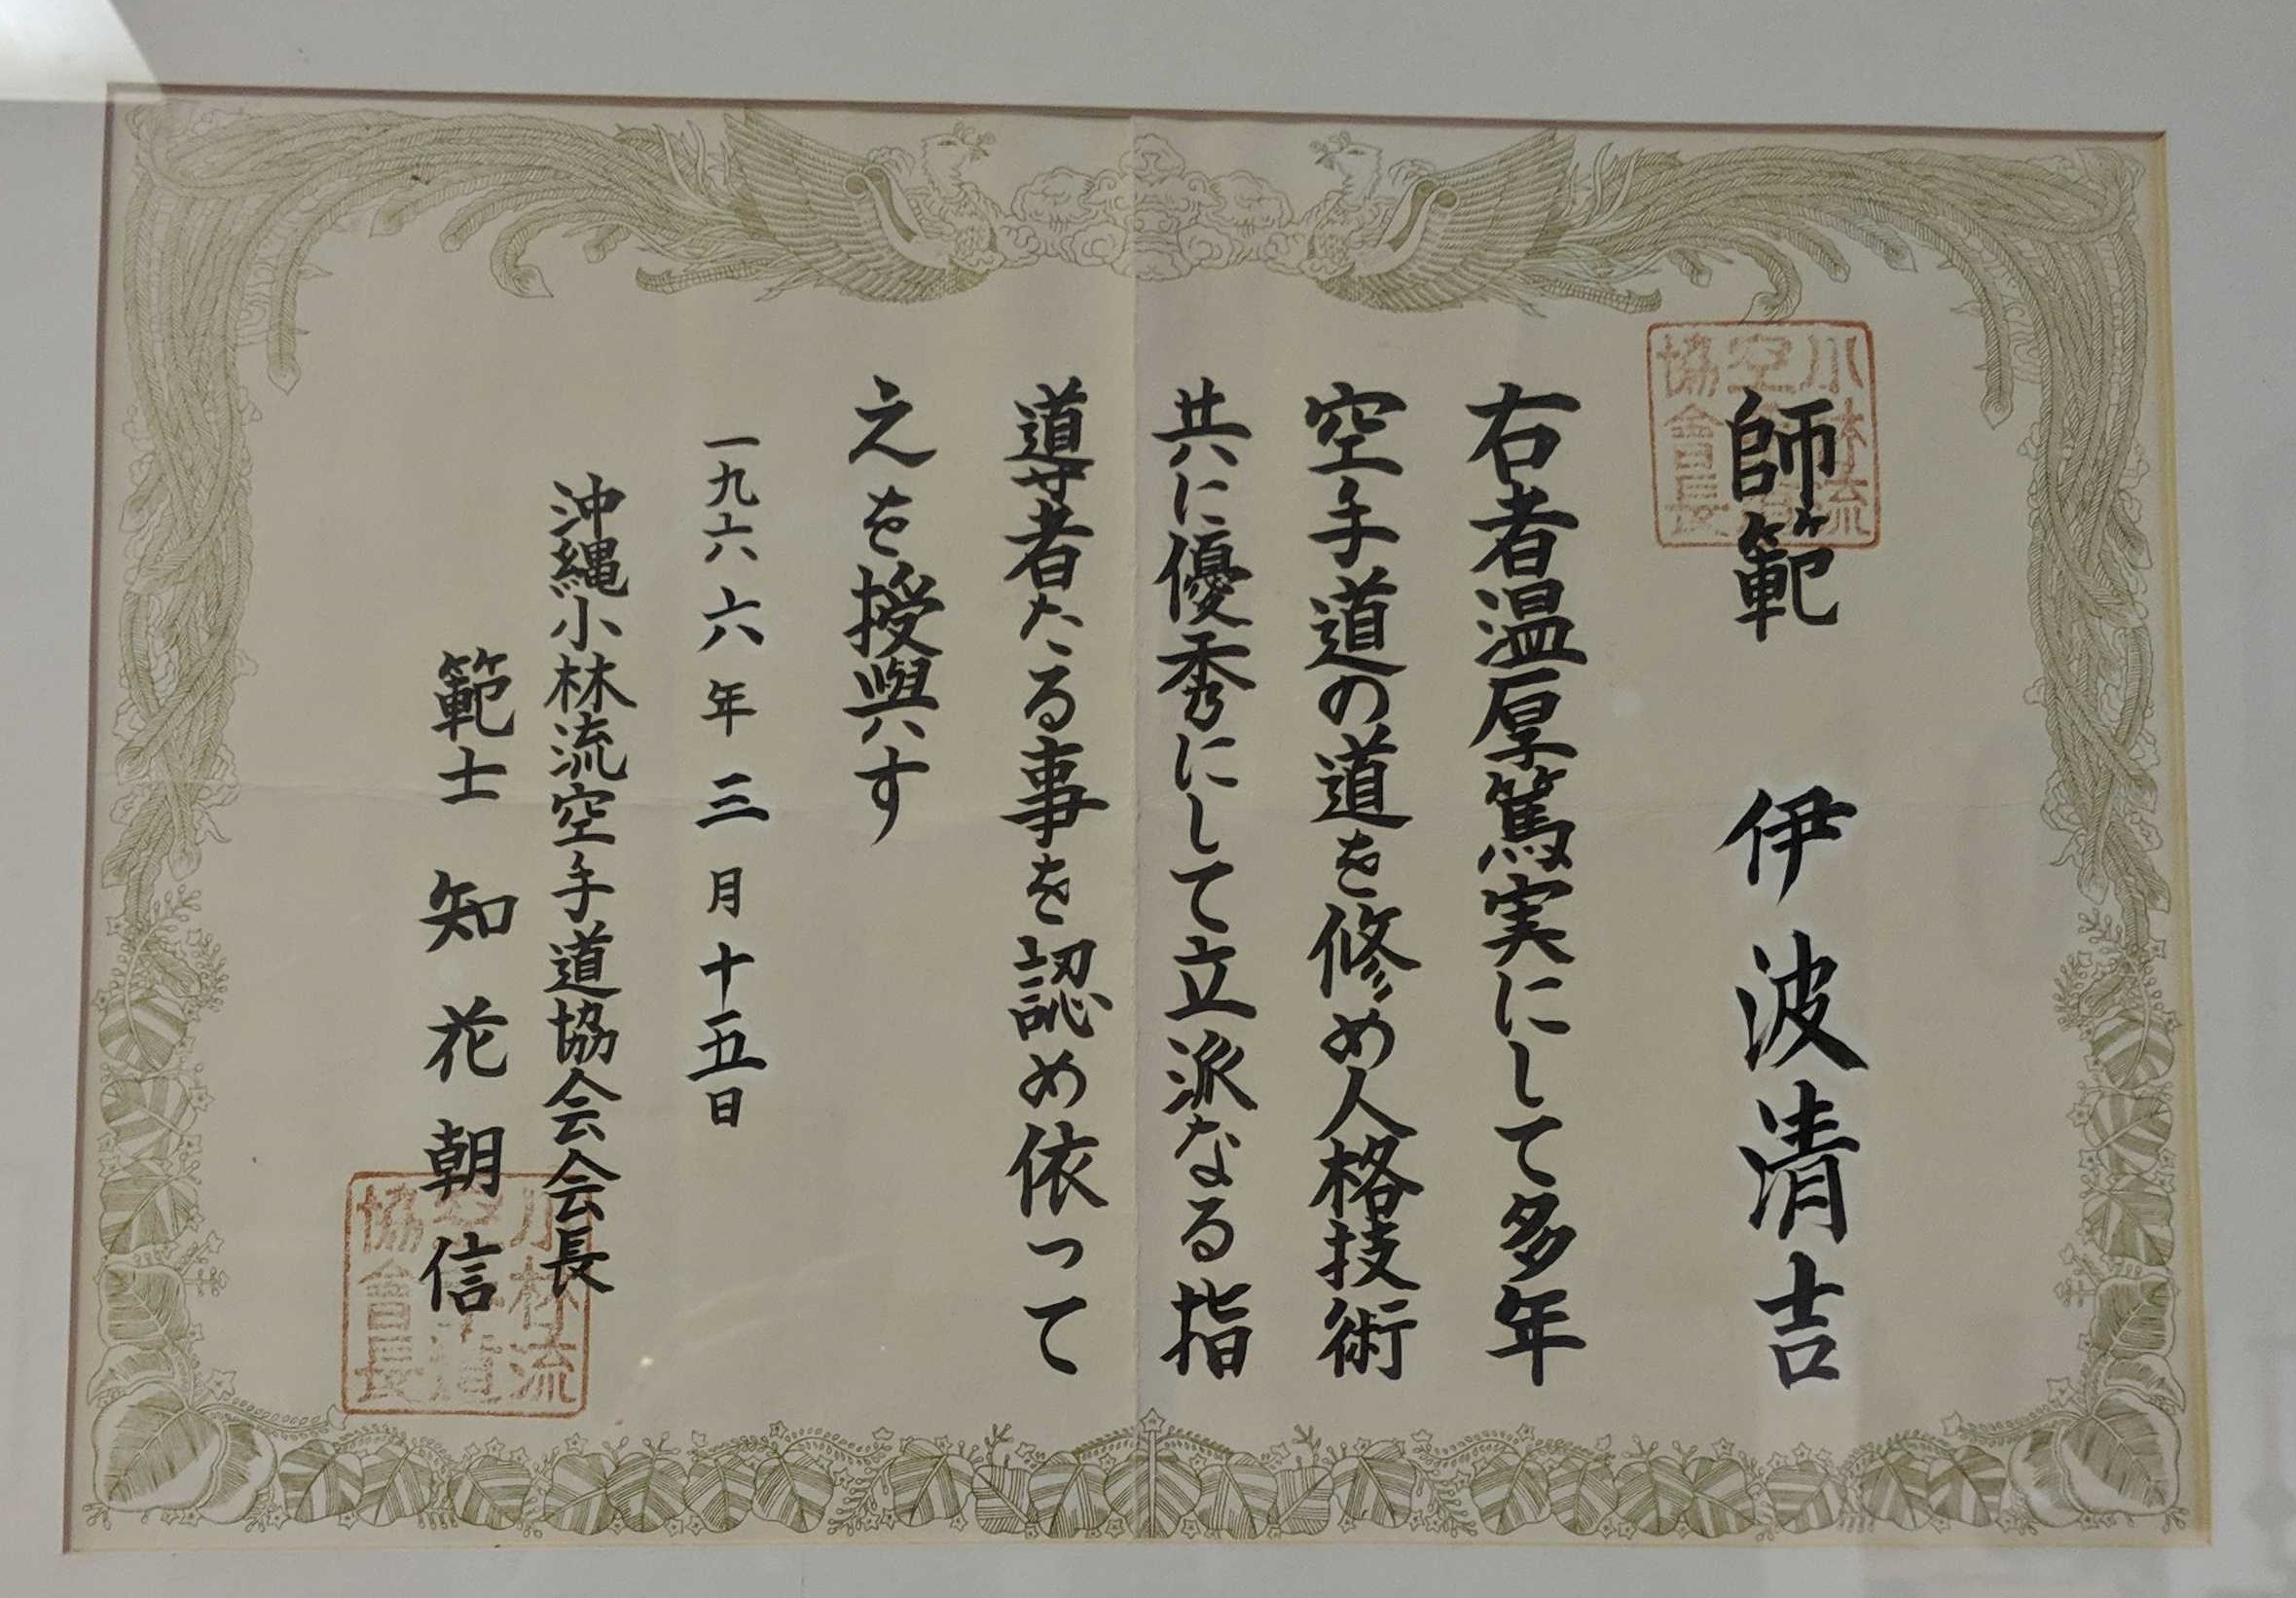 師範 伊波清吉
右者温厚篤実にして多年
空手道の道を修め人格技術
共に優秀にして立派なる指
導者たる事を認め依って
之を授與す
一九六六年三月十五日
沖縄小林流空手道協会会長
範士 知花朝信
小林流
空手道
協會長
小林流
空手道
協會長